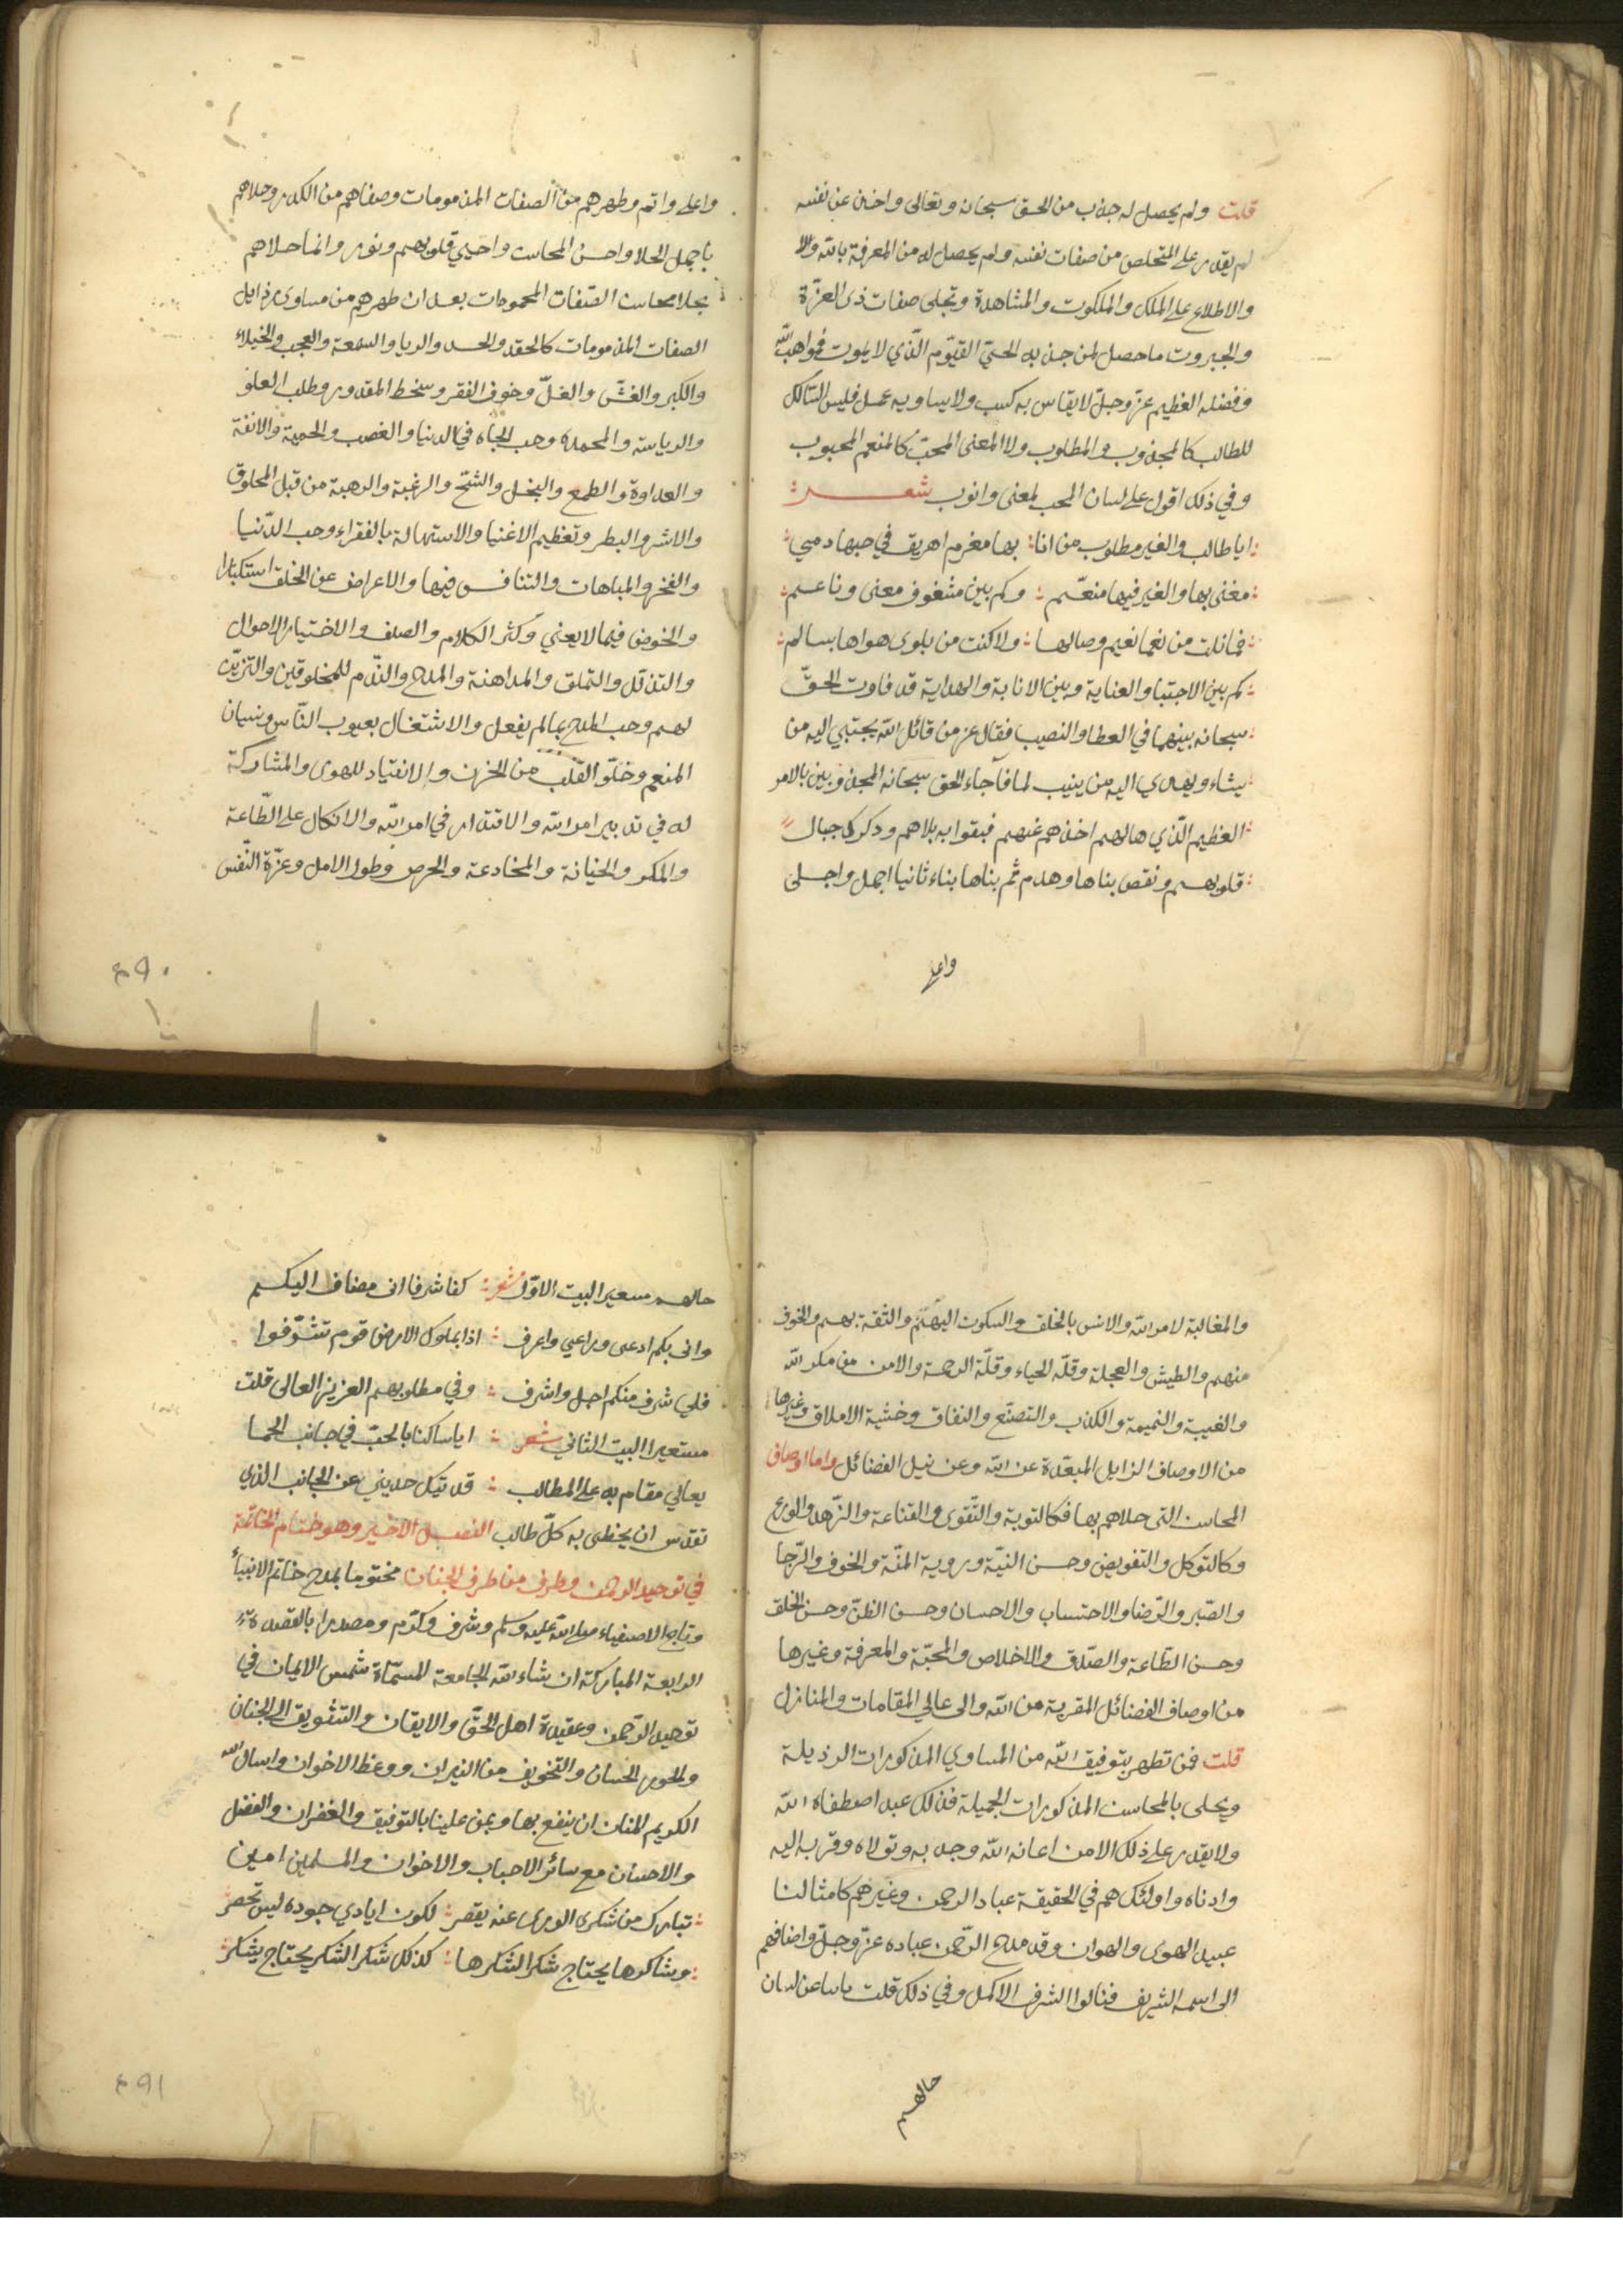 قلت ولم يحصل له جذب من الحق سبحانه وتعالى واخذ عن نفسه
لم يقدر على التخلص من صفات نفسه ولم يحصل له من المعرفة بالله
والاطلاع على الملك والملكوت والمشاهدة وتجلى صفات ذى العزّة
والجبروت ما حصل لمن جذبه الحىّ القيّوم الّذي لا يموت فمواهب الله
وفضله العظيم عزّ وجلّ لا يقاس به كسب ولا يساويه عمل فليس السّالك
للطالب كالمجذوب والمطلوب ولا المعنى المحبّ كالمنعم المحبوب
وفي ذلك اقول على لسان المحب لمعنى وانوب شعر
ايا طالب والغير مطلوب من انا بها مغرم اهريق في حبها دمي
معنى بها والغير فيها منعّم وكم بين مشغوف معنى وناعم
فما نلت من نعما نعيم وصالها ولا كنت من بلوى هواها بسالم
كم بين الاجتبا والعناية وبين الانابة والهداية قد فاوت الحقّ
سبحانه بينهما في العطا والنصيب فقال عز من قائل الله يجتبي اليه من
يشاء ويهدي اليه من ينيب لما فاجاء الحق سبحانه المجذوبين بالامر
العظيم الّذي هالهم اخذهم عنهم فبقوا به بلاهم ودكرك جبال
قلوبهم ونقص بناها وهدم ثم بناها بناء ثانيا اجمل واجلى
واعلى
واعلى واتم وطهرهم من الصفات المذمومات وصفاهم من الكدر وحلاهم
باجمل الحلا واحسن المحاسن واحيي قلوبهم ونور وانما حلاهم
بحلا محاسن الصّفات المحمودات بعد ان طهرهم من مساوى رذايل
الصفات المذمومات كالحقد والحسد والريا والسمعة والعجب والخيلاء
والكبر والغشّ والغلّ وخوف الفقر وسخط المقدور وطلب العلو
والرياسة والمحمدة وحب الجاه في الدنيا والغصب والحمية والانفة
والعداوة والطمع والبخل والشحّ والرغبة والرهبة من قبل المخلوق
والاشر والبطر وتعظيم الاغنيا والاستهالة بالفقراء وحب الدّنيا
والفخر والمباهات والتنافس فيها والاعراض عن الخلق استكبارا
والخوض فيما لا يعني وكثر الكلام والصلف والاختيار الاحوال
والتذلل والتملق والمداهنة والمدح والذّم للمخلوقين والتزيّن
لهم وحب المدح بما لم يفعل والاشتغال بعيوب النّاس ونسيان
المنعم وخلّو القلب من الحزن والانقياد للهوى والمشاركة
له في تدبير امر الله والاقتدار في امر الله والاتكال على الطّاعة
والمكر والخيانة والمخادعة والحرص وطول الامل وعزّة النّفس
٢٩٠
والمغالبة لامر الله والانس بالخلق والسكون اليهم والثقة بهم والخوف
منهم والطيش والعجلة وقلّة الحياء وقلّة الرحمة والامن من مكر الله
والغيبة والنميمة والكذب والتصنّع والنفاق وخشية الاملاق وغيرها
من الاوصاف الرذايل المبعّدة عن الله وعن نيل الفضائل واما اوصاف
المحاسن التى حلاهم بها فكالتوبة والتّقوى والقناعة والزّهد والورع
وكالتوكل والتفويض وحسن النيّة وروية المنّة والخوف والرّجا
والصّبر والرّضا والاحتساب والاحسان وحسن الظنّ وحسن الخلق
وحسن الطّاعة والصّدق والاخلاص والمحبّة والمعرفة وغيرها
من اوصاف الفضائل المقربة من الله والى عالي المقامات والمنازل
قلت فمن تطهر بتوفيق الله من المساوي المذكورات الرذيلة
ويحلى بالمحاسن المذكورات الجميلة فذلك عبد اصطفاه الله
ولا يقدر على ذلك الا من اعانه الله وجذبه وتولاه وقرّبه اليه
وادناه واولئك هم في الحقيقة عباد الرحمن وغيرهم كامثالنا
عبيد الهوى والهوان وقد مدح الرّحمن عباده عزّ وجلّ واضافهم
الى اسمه الشريف فنالوا الشرف الاكمل وفي ذلك قلت عن لسان
حالهم
حالهم مستعير البيت الاوّل شعر كفا شرفا انى مضاف اليكم
وانى بكم ادعى وراعي واعرف اذا بملوك الارض قوم تشرّفوا
فلي شرف منكم اجل واشرف وفي مطلوبهم العزيز العالى قلت
مستعيرا البيت الثاني شعر ايا ساكنا بالحبّ في جانب الحما
يعالي مقام به على المطالب قد تيّل حديثي عن الجانب الذي
تقدس ان يحظى به كلّ طالب الفصل الاخير وهو ختام الخاتمة
في توحيد الرحمن وطرف من اطرف الجنان مختوما بمدح خاتم الانبياء
وتاج الاصفياء صلى الله عليه وسلم وشرف وكرّم ومصدرا بالقصدة
الرابعة المباركة ان شاء الله الجامعة المسمّاة شمس الايمان في
توحيد الرّحمن وعقيدة اهل الحقّ والايقان والتشويق الى الجنان
والحور الحسان والتخويف من النيران ووعظ الاخوان واسال الله
الكريم المنان ان ينفع بها ويمن علينا بالتوفيق والغفران والفضل
والاحسان مع سائر الاحباب والاخوان والمسلمين امين
تبارك من شكرى الورى عنه يقصر لكون ايادي جوده ليس تحصر
وشاكرها يحتاج شكرا لشكرها كذلك شكر الشكر يحتاج يشكر
٢٩١